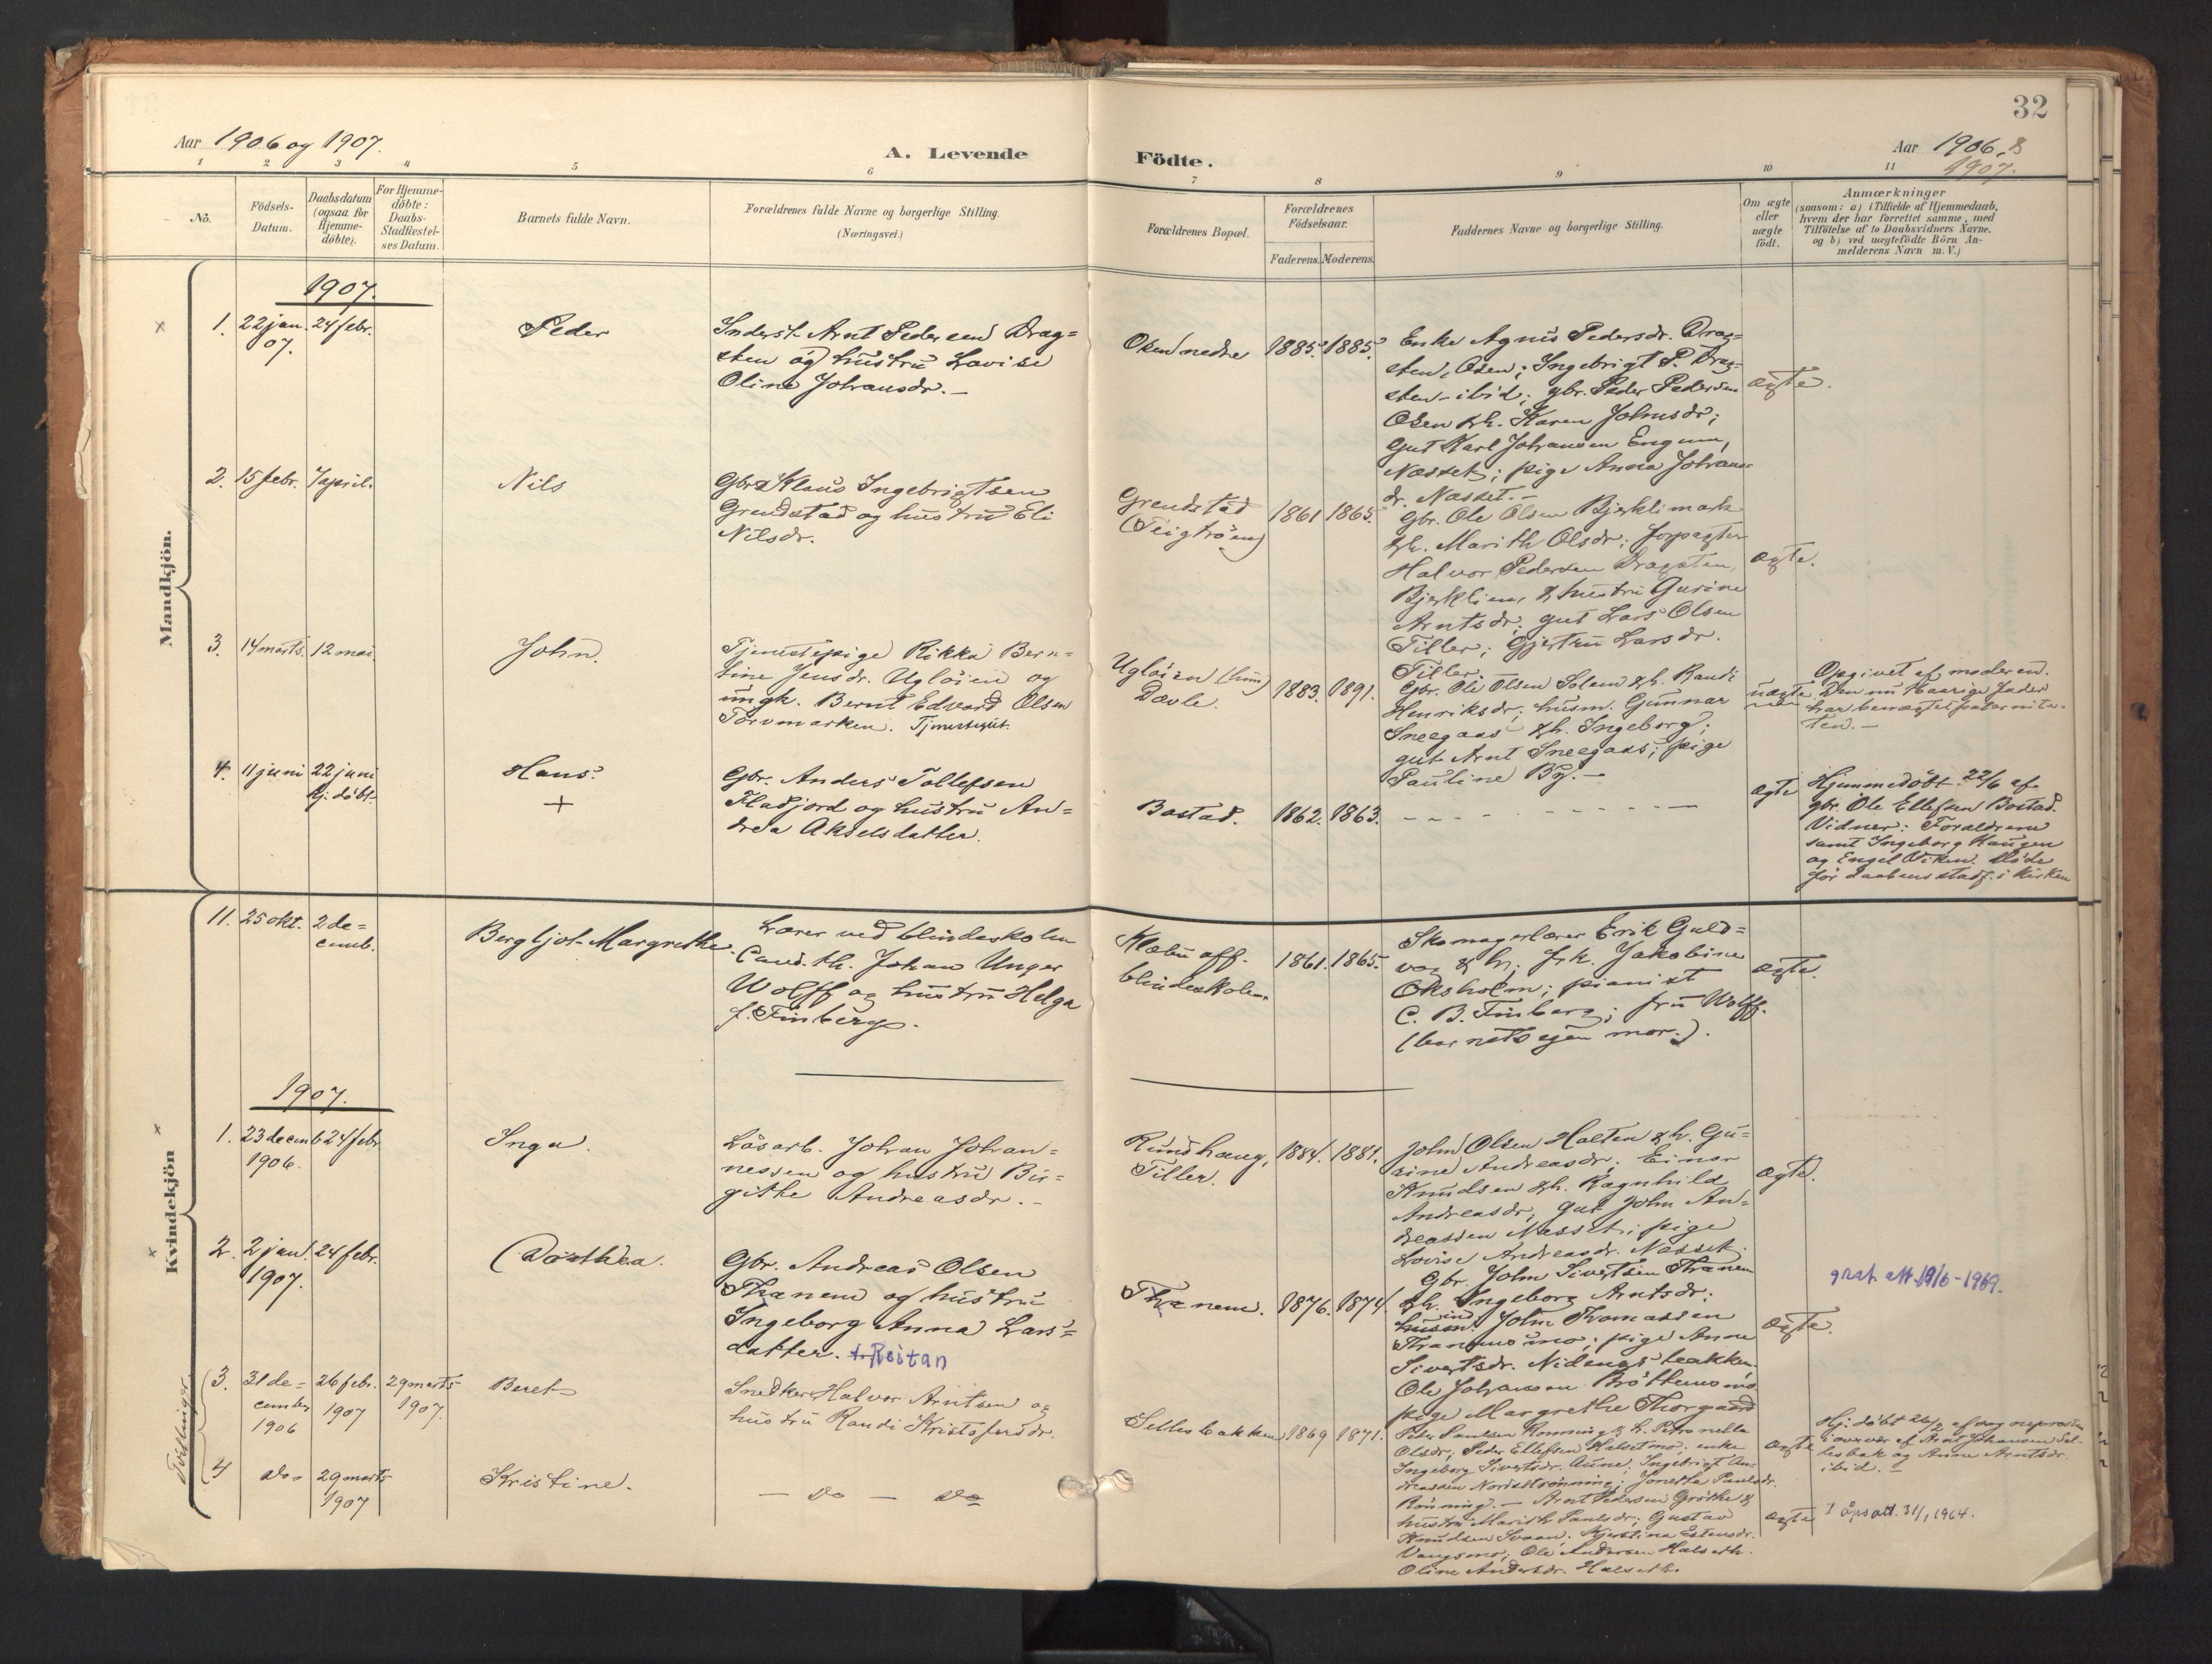 32
Aar 1906 og 1907.
A. Levende
Födte.
Aar 1906 &
1907.
1 2 3 4 5 6 7 8 9 10 11
No.
Födsels-
Datum.
Daabsdatum
(ogsaa for
Hjemme-
döbte).
For Hjemme-
döbte:
Daabs-
Stadfæstel-
ses Datum.
Barnets fulde Navn.
Forældrenes fulde Navne og borgerlige Stilling.
(Næringsvei.)
Forældrenes Bopæl.
Forældrenes
Födselsaar.
Faderens.
Moderens.
Faddernes Navne og borgerlige Stilling.
Om ægte
eller
uægte
födt.
Anmærkninger
(saasom: a) i Tilfælde af Hjemmedaab,
hvem der har forrettet samme, med
Tilföielse af to Daabsvidners Navne.
og b) ved uægtefödte Börn An-
melderens Navn m. V.)
Mandkjön.
1907.
1. 22 jan. 24 febr.
07.
Peder
Inderst Arnt Pedersen Drag=
sten og hustru Lovise
Oline Johansdr. –
Osen nedre
1885. 1885.
Enke Agnis Pedersdr. Drag=
sten, Osen; Ingebrigt P. Drag-
sten – ibid; gbr. Peder Pedersen
Osen & h. Karen Johnsdr;
gut Karl Johansen Engum,
Nasset; pige Anna Johans-
dr. Nasset. –
ægte.
2. 15 febr. 7 april.
Nils
Gbr. Klaus Ingebrigtsen
Grendstad og hustru Eli
Nilsdr.
Grendstad
(Teigtröen)
1861 1865.
Gbr. Ole Olsen Bjerklimark
& h. Marith Olsdr; forpagter
Halvor Pedersen Dragsten,
Bjerklien, & hustru Gurine
Arntsdr; gut Lars Olsen
Tiller; Gjertru Larsdr.
Tiller.
ægte.
3. 14 marts. 12 mai.
John.
Tjenestepige Rikka Bern=
tine Jensdr. Uglöien og
ungk. Bernt Edvard Olsen
Torvmarken. Tjenestegut.
Uglöien (hun)
Dævle.
1883. 1891.
Gbr. Ole Olsen Solem & h. Randi
Henriksdr; husm. Gunnar
Sneegaas & h. Ingeborg;
gut Arnt Sneegaas; pige
Pauline By. –
uægte
Opgivet af moderen.
Den nu 16aarige fader
har benægtet paterni te-
ten. –
4. 11 juni 22 juni
hj. döbt.
Hans.
+
Gbr. Anders Tollefsen
Fladfjord og hustru An=
drea Akselsdatter.
Bostad.
1862. 1863.
ægte
Hjemmedöbt 22/6 af
gbr. Ole Ellefsen Bostad.
Vidner: Forældrene
samt Ingeborg Haugen
og Engel Viken. Döde
för daabens stadf. i kirken
Kvindekjön
11. 25 okt. 2 de=
cemb.
Bergljot Margrethe.
Lærer ved blindeskolen
Cand. th. Johan Unger
Wolff og hustru Helga
f. Finberg.
Klæbu off.
blindeskole
1861. 1865.
Skomagerlærer Erik Guld=
vog & h; frk. Jakobine
Oksholm; pianist
C. B. Finberg; fru Wolff.
(barnets egen mor.).
ægte.
1907.
1. 23 decemb 24 febr.
1906.
Inga.
Lösarb. Johan Johan=
nessen og hustru Bir=
githe Andreasdr. –
Rundhaug,
Tiller.
1884. 1881.
John Olsen Halten & h. Gu=
rine Andreasdr; Einar
Knudsen & h. Ragnhild
Andreasdr; gut John An=
dreassen Nasset; pige
Lovise Andreasdr. Nasset.
ægte.
2. 2 jan. 24 febr.
1907.
Dorthea.
Gbr. Andreas Olsen
Thanem og hustru
Ingeborg Anna Lars=
datter. f. Reitan
Thanem.
1876. 1874.
Gbr. John Sivertsen Thanem
& h. Ingeborg Arntsdr;
ind John Tomassen
Thanemsmo; pige Anne
Sivertsdr. Nidengsbakken
Ole Johansen Bröttemsmo
pige Margrethe Thorgaard
ægte.
grat. att. 19/6–1969.
Tvillinger.
3. 31 de=
cember
1906
26 febr.
1907
29 marts
1907.
Beret
Snedker Halvor Arntsen og
hustru Randi Kristofersdr.
Sellesbakken
1869 1871.
Peder Paulsen Rönning & h. Petronella
Olsdr; Peder Ellefsen Halsetmo; enke
Ingeborg Sivertsdr. Aune; Ingebrigt An-
dreassen Nordsetrönning; Jonetta Paulsdr.
Rönning. – Arnt Pedersen Gröthe &
hustru Marith Paulsdr; Gustav
Knudsen Svaan; Kjerstina Estensdr.
Vangsmo; Ole Andersen Halseth.
Oline Andersdr. Halseth.
ægte
Hj. döbt 26/2 af sogneprosten
i overvær af Arnt Johansen Sel-
lesbak og Anne Arntsdr.
ibid. –
4 do. 29 marts
1907
Kristine.
– do – do
ægte
1 åps att. 31/1 1964.